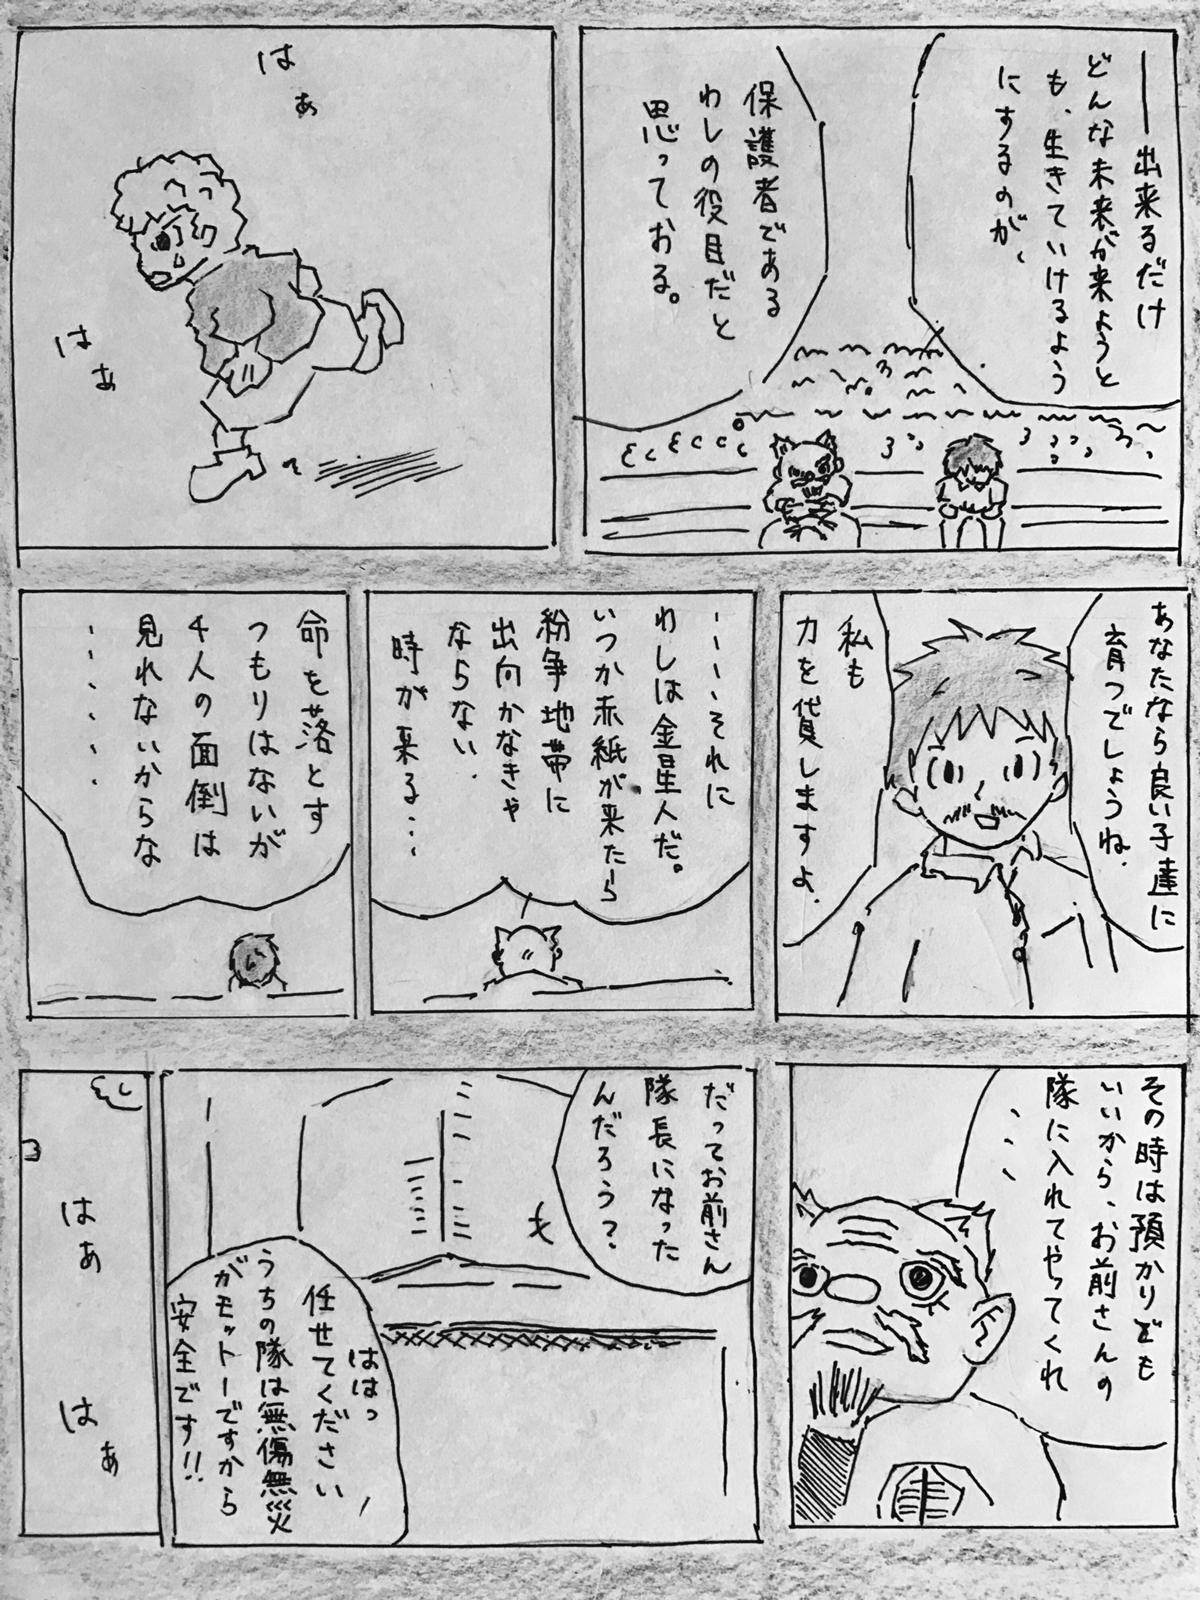 ──出来るだけ
どんな未来が来ようと
も、生きていけるよう
にするのが、
保護者である
わしの役目だと
思っておる。
はぁ
はぁ
あなたなら良い子達に
育つでしょうね.
私も
力を貸しますよ.
、、、、それに
わしは金星人だ。
いつか赤紙が来たら
紛争地帯に
出向かなきゃ
ならない.
時が来る・・・
命を落とす
つもりはないが
4人の面倒は
見れないからな
・・・・・・
その時は預かりども
いいから、お前さんの
隊に入れてやってくれ
、、、
だってお前さん
隊長になった
んだろう?
ははっ
任せてください
うちの隊は無傷無災
がモットーですから
安全です!!
はぁ
はぁ